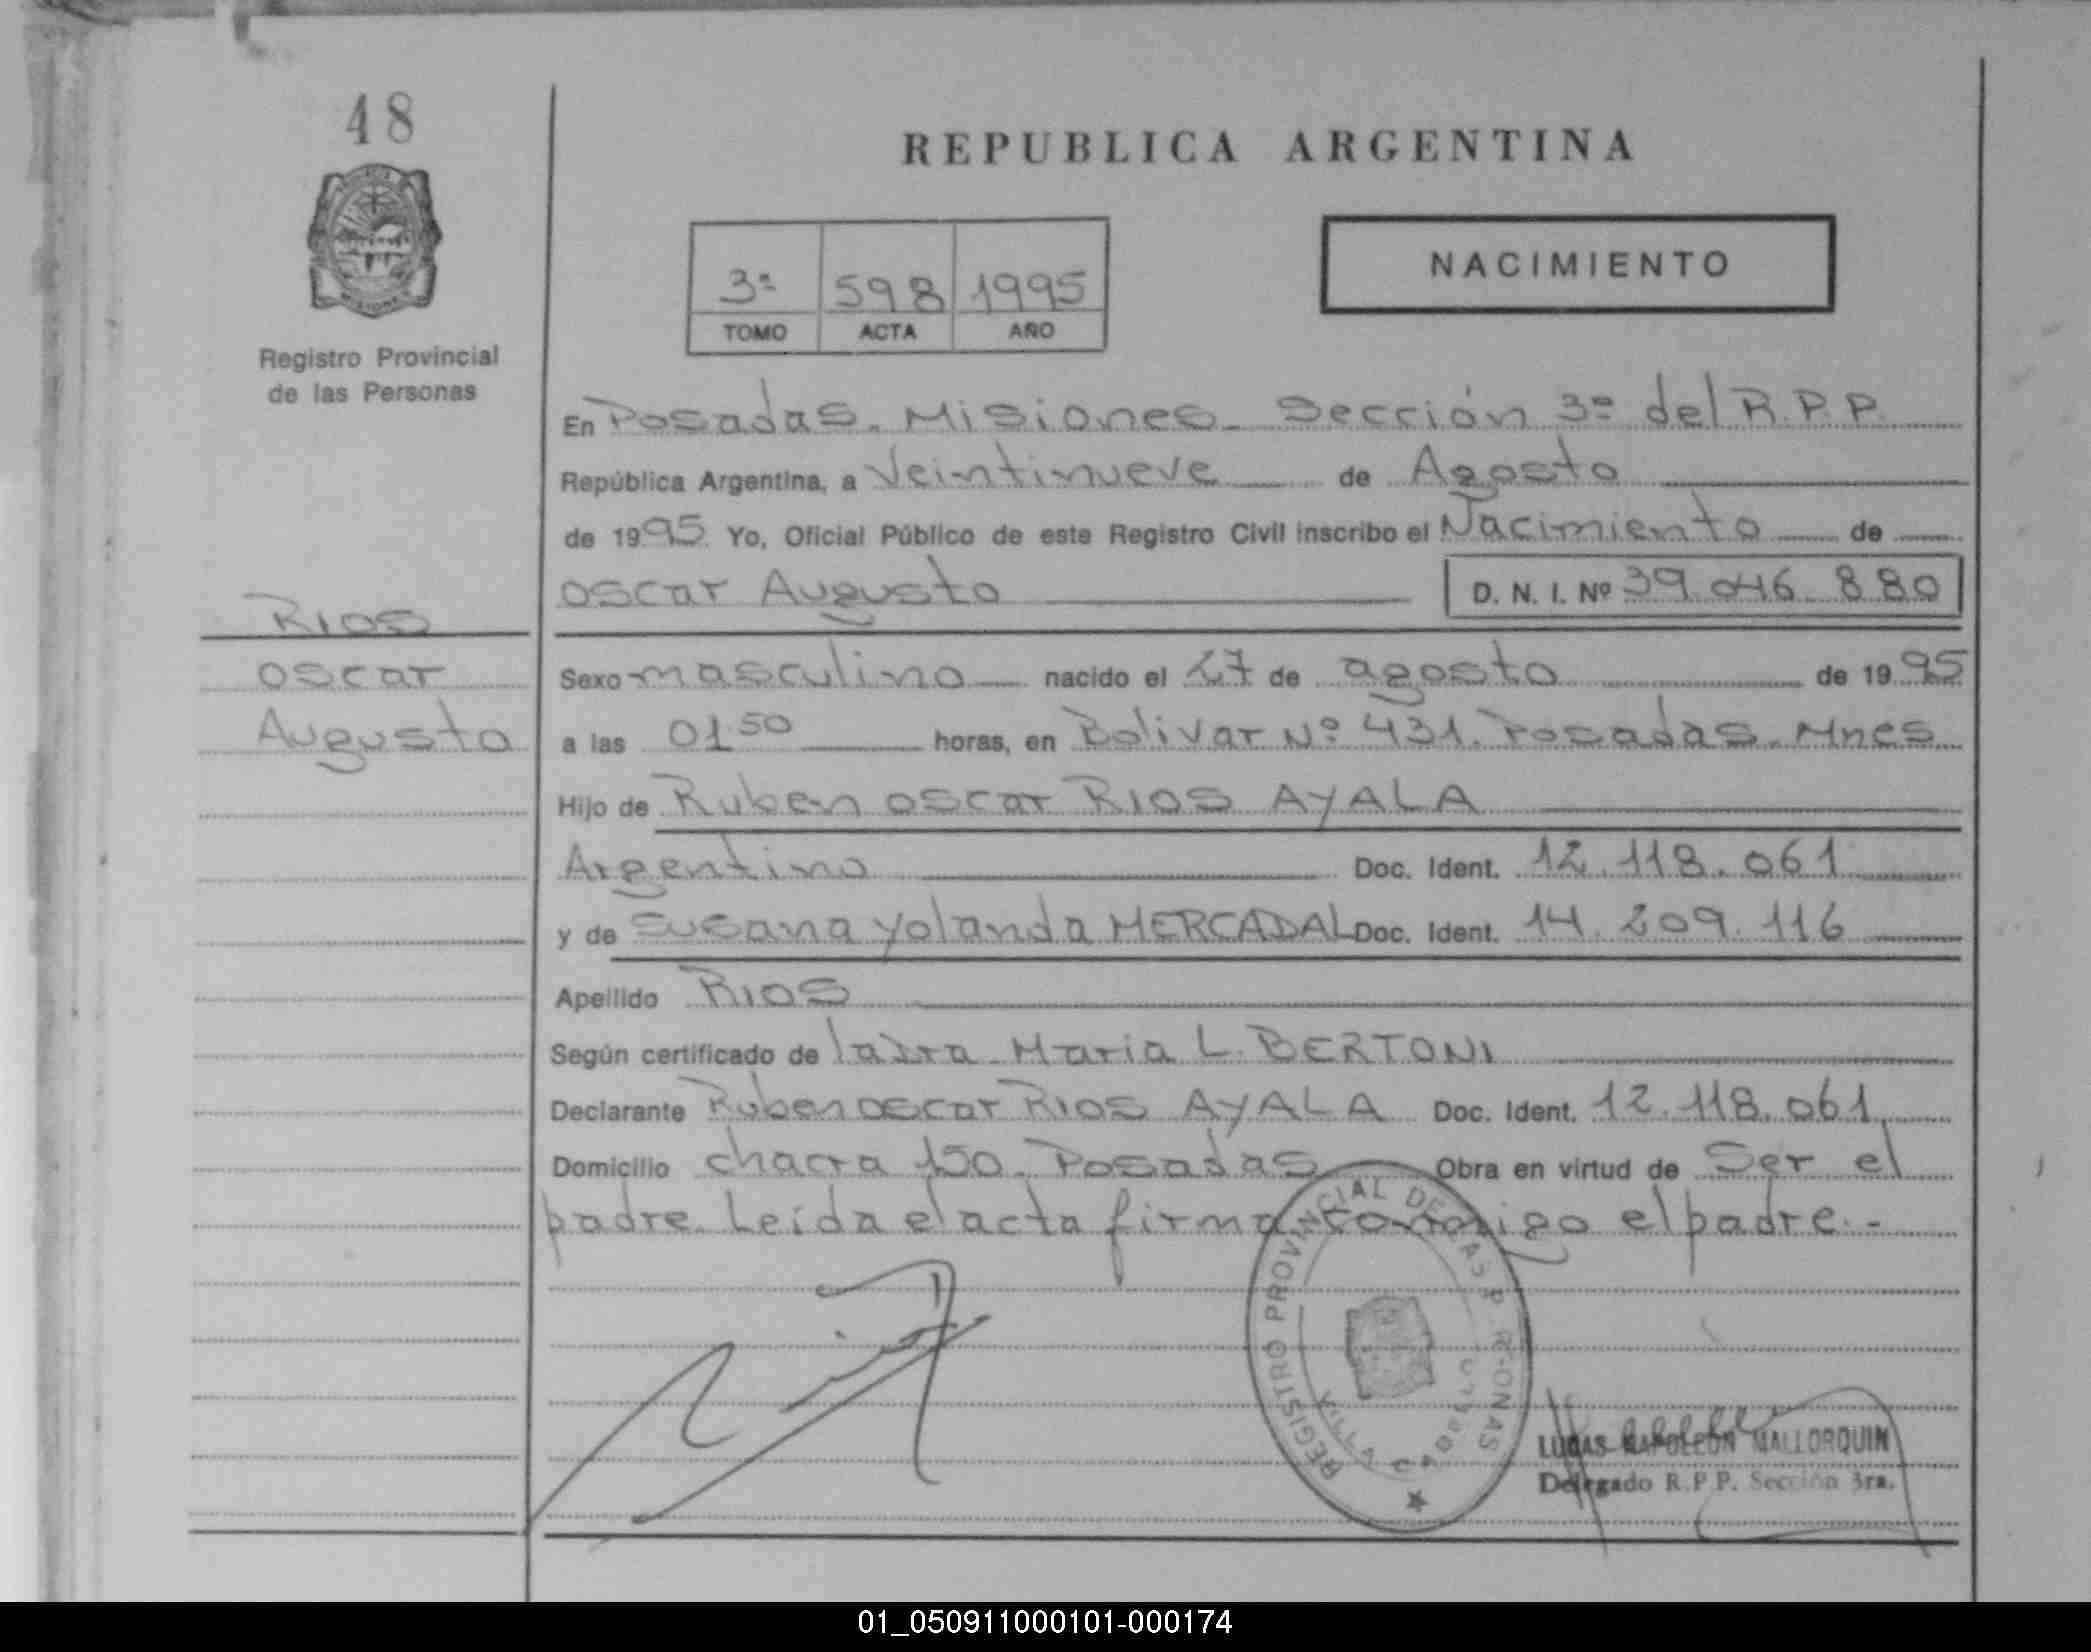 48
REPUBLICA ARGENTINA
3ª 598 1995
TOMO ACTA AÑO
NACIMIENTO
Registro Provincial
de las Personas
En Posadas. Misiones. Sección 3ª del R.P.P.
República Argentina, a Veintinueve de Agosto
de 1995. Yo, Oficial Público de este Registro Civil inscribo el Nacimiento de
Oscar Augusto D. N. I. Nº 39.046.880
RIOS
Oscar
Augusto
Sexo masculino nacido el 27 de agosto de 1995
a las 01.50 horas, en Bolivar Nº 431. Posadas. Mnes
Hijo de Ruben Oscar RIOS AYALA
Argentino Doc. Ident. 12.118.061
y de Susana Yolanda MERCADAL Doc. Ident. 14.209.116
Apellido RIOS
Según certificado de la Dra. Maria L. BERTONI
Declarante Ruben Oscar RIOS AYALA Doc. Ident. 12.118.061
Domicilio chacra 150. Posadas Obra en virtud de Ser el
padre. Leída el acta firma conmigo el padre.-
REGISTRO PROVINCIAL DE LAS PERSONAS
VILLA CABELLO
LUCAS NAPOLEON MALLORQUIN
Delegado R.P.P. Sección 3ra.
01_050911000101-000174